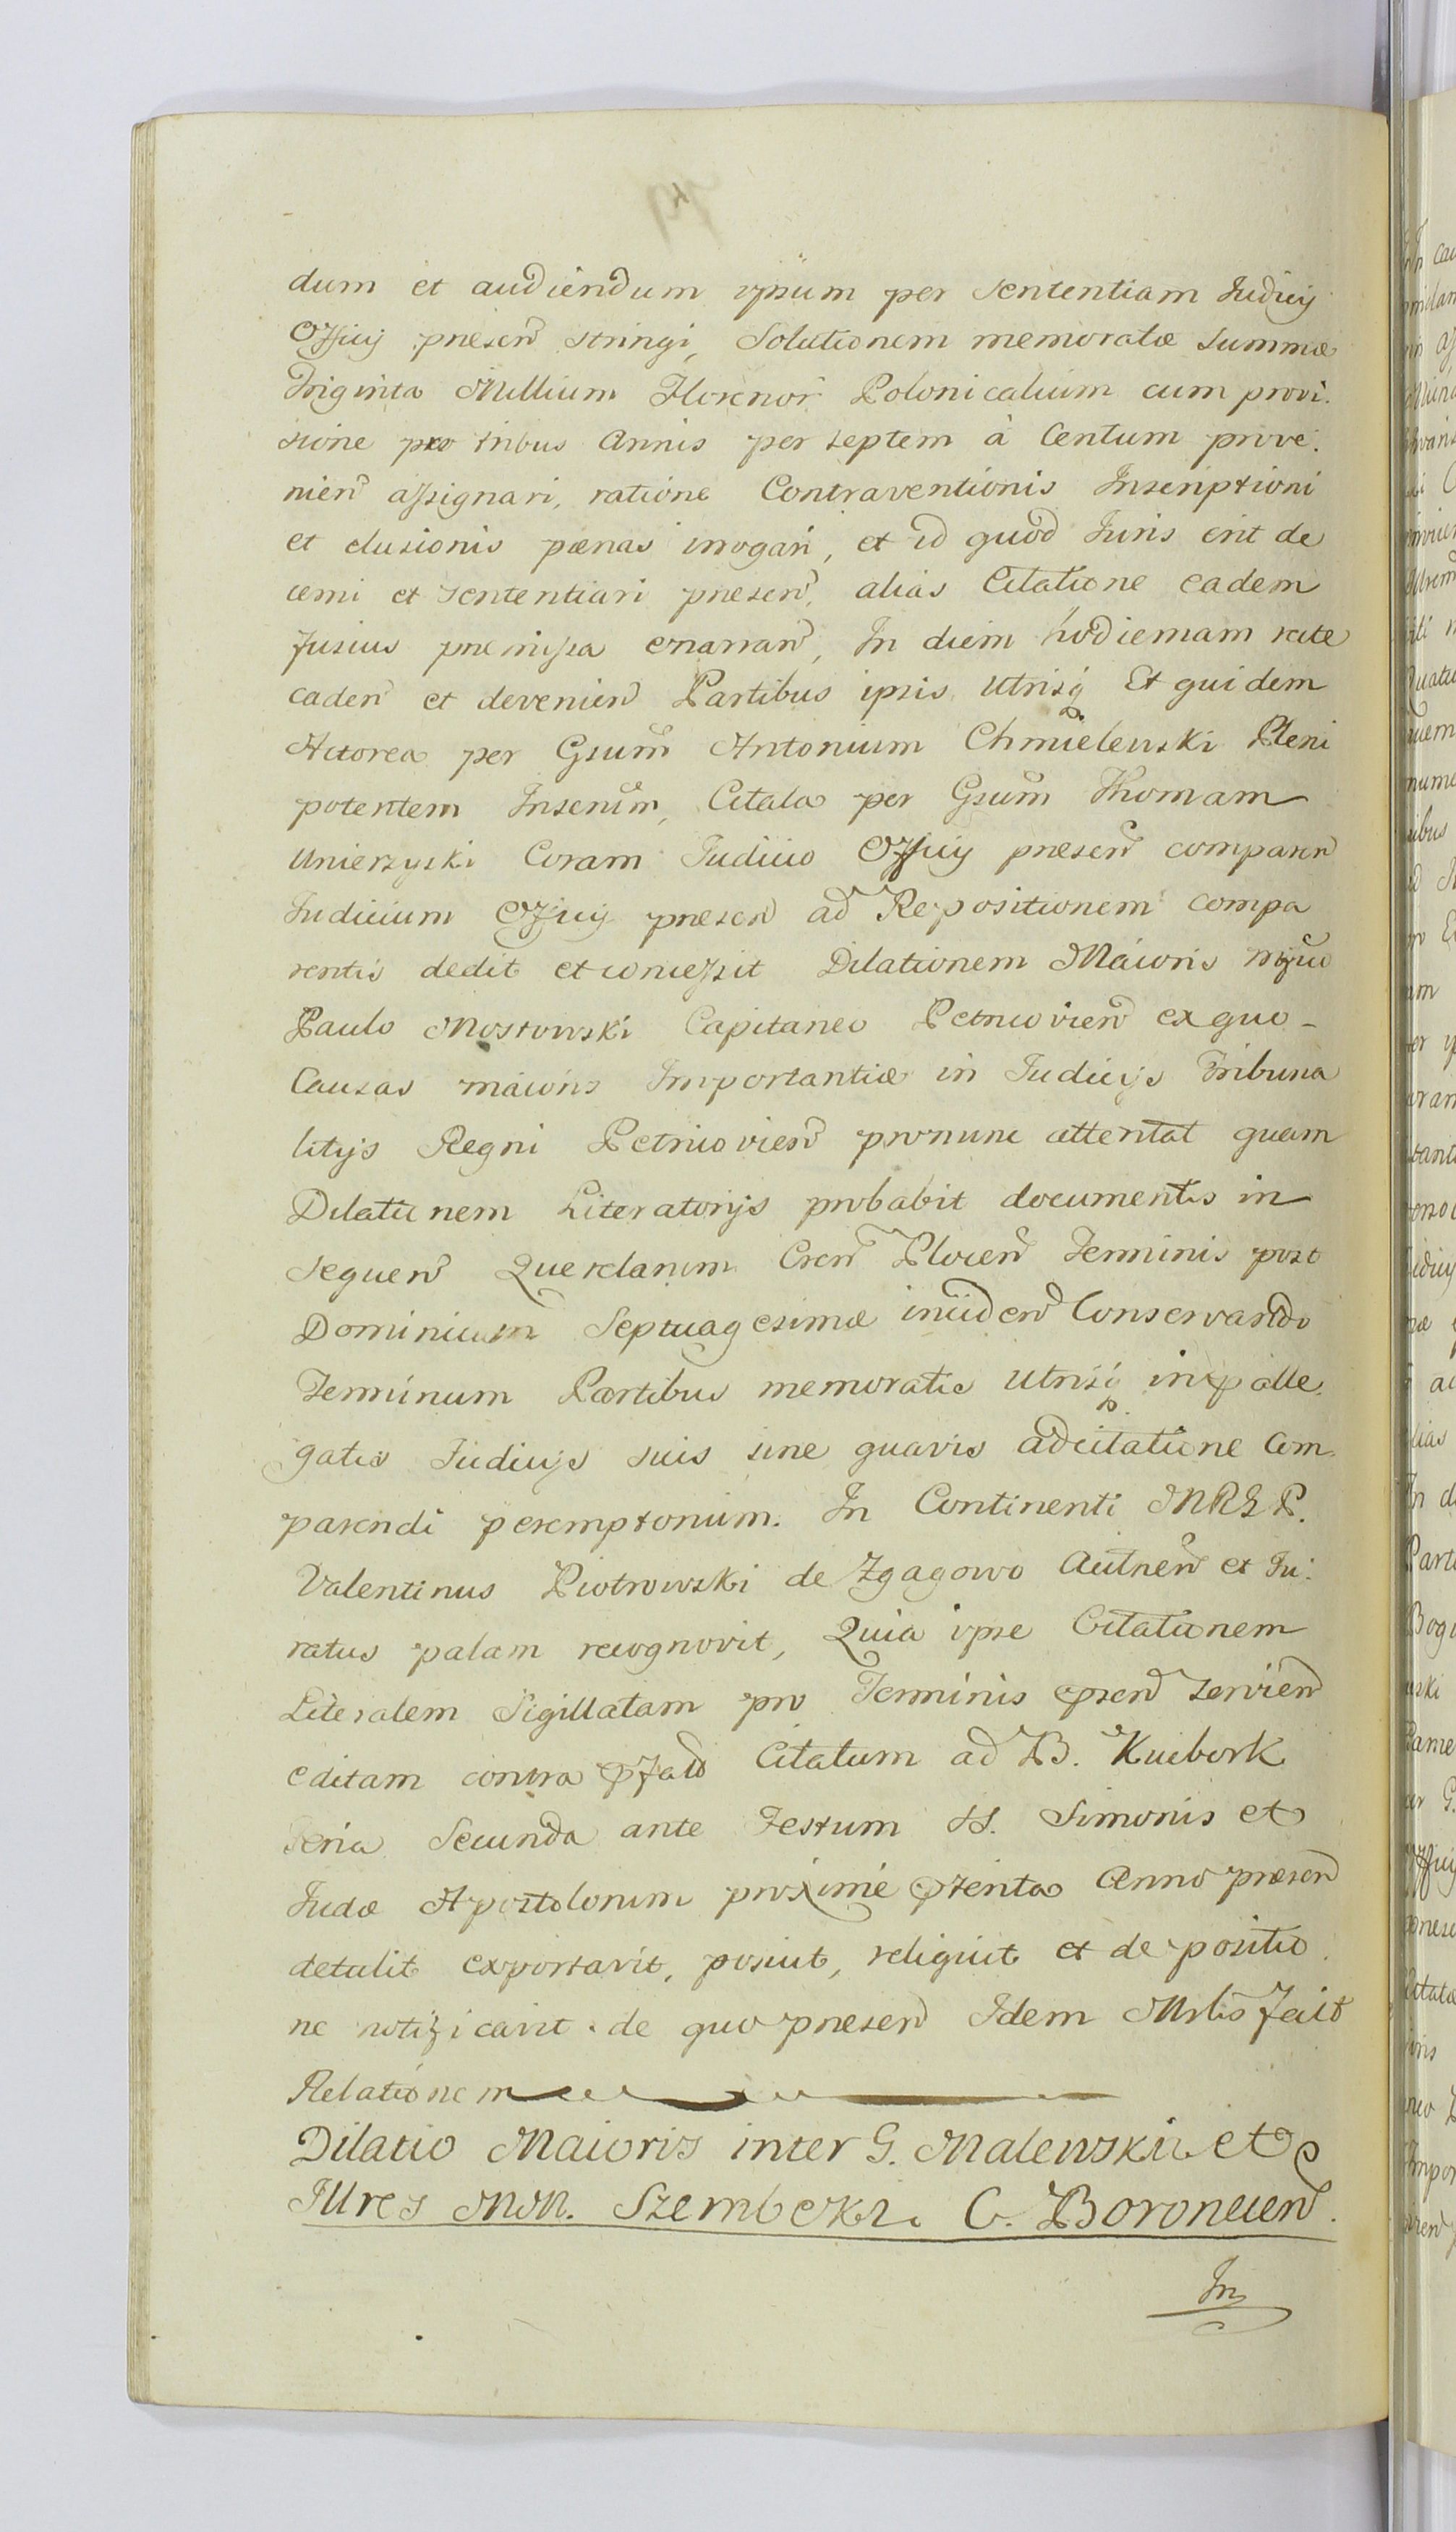 dum et audiendum ipsum per Sententiam Judicÿ
Officÿ præsen stringi, Solutionem memoratæ Summæ
Triginta Millium Florenor Polonicalium cum provi:
sione pro tribus Annis per septem à Centum prove:
nien assignari, ratione Contraventionis Inscriptioni
et elusionis pænas irrogari, et id quod Juris erit de
cerni et sententiari præsen, alias Citatione eadem
fusius præmissa enarran, In diem hodiernam rite
caden et devenien Partibus ipsis utrisq Et quidem
Actorea per Gsum Antonium Chmielewski Pleni
potentem Inserum, Citata per Gsum Thomam
Unierzyski Coram Judicio Officÿ præsen comparen
Judicium Officÿ præsen ad Repositionem compa
rentis dedit et concessit Dilationem Maioris Mgco
Paulo Mostowski Capitaneo Petricovien ex quo
Causas maioris Importantiæ in Judicÿs Tribuna
litÿs Regni Petricovien pronunc attentat quam
Dilationem Literatorÿs probabit documentis in
Sequen Querelarum Cren Plocen Terminis post
Dominicam Septuagesimæ inciden Conservando
Terminum Partibus memoratis Utrisq in p alle
gatis Judicÿs suis sine quavis adcitatione Com
parendi peremptorium. In Continenti MRGP.
Valentinus Piotrowski de Zgagowo Autnen et Ju:
ratus palam recognovit, Quia ipse Citationem
Literalem Sigillatam pro Terminis psen servien
editam contra pfato Citatum ad B. Kuibork
Feria Secunda ante Festum SS. Simonis et
Judæ Apostolorum proximè pterita Anno præsen
detulit exportavit, posuit, reliquit et de positio
ne notificavit. de quo præsen Idem Mrlis fecit
Relationem
Dilatio Maioris inter G. Malewski et
Illres MM. Szembeki. C. Boroneuen.
In